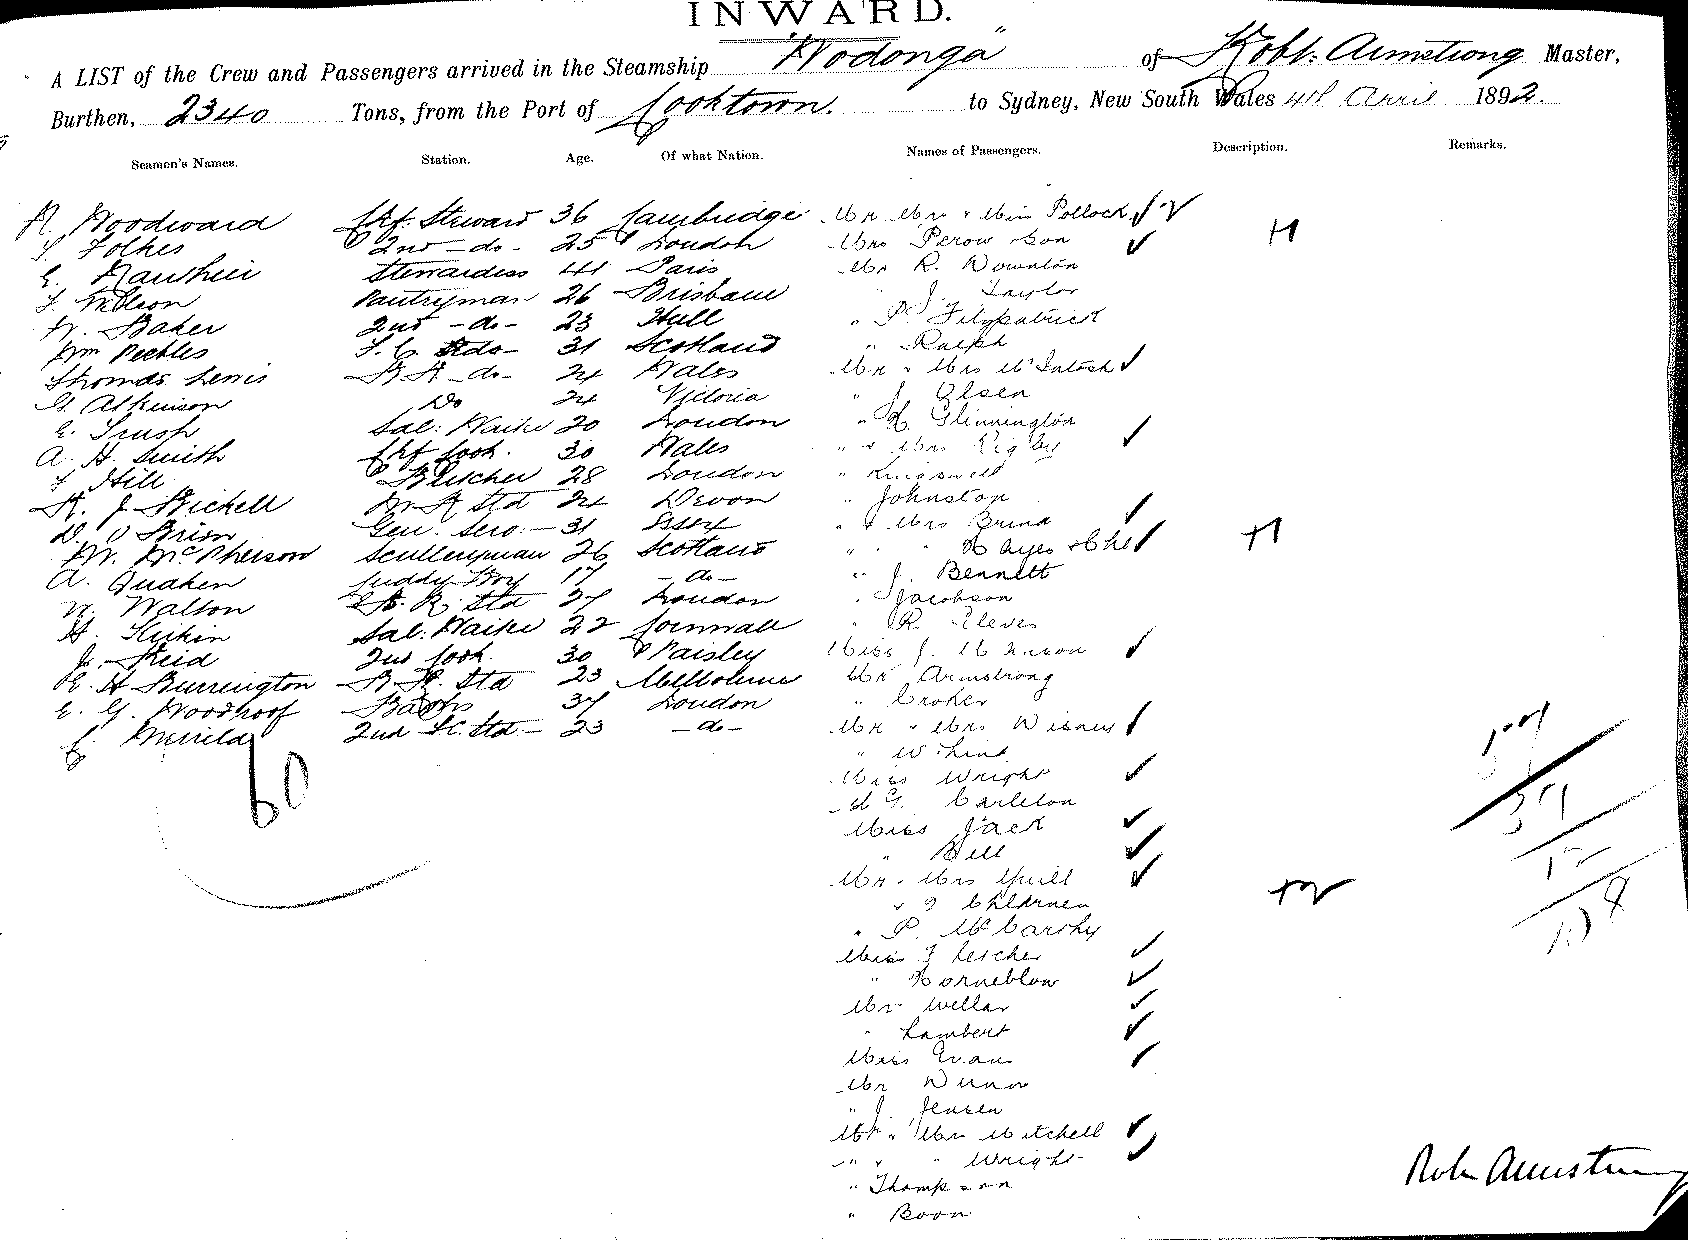 INWARD.
A LIST of the Crew and Passengers arrived in the Steamship "Wodonga" of Robt. Armstrong Master,
Burthen, 2340 Tons, from the Port of Cooktown. to Sydney, New South Wales 4th April 1892.
Seamen's Names. Station. Age. Of what Nation. Names of Passengers. Description. Remarks.
Woodward Chf. Steward 36 Cambridge Mr Mrs & Miss Pollock
Folkes 2nd - do - 25 London Mrs Perow & Son
E. Stewardess 41 Paris Mr R. Downton
Pantryman 26 Brisbane " J. Taylor
W. Baker 2nd - do - 23 Hull " P. Fitzpatrick
Wm Peebles F.C. do - 31 Scotland " Ralph
Thomas Lewis - do - 24 Wales Mr & Mrs McIntosh
Atkinson Do 24 Victoria " J. Olsen
E. Trush Sal: 20 London " H. Glinnington
A. H. Smith Chf Cook. 30 Wales " & Mrs Rigby
Hill Butcher 28 London " Kingswell
J. Bickell Std 24 Devon " Johnston
Gen. Serv. - 31 Essex " & Mrs Brind
M. McPherson Sculleryman 26 Scotland " " " Hayes & Chd
A. Cuddy Boy 17 - do - " J. Bennett
W. Walton Std 27 London " Jacobson
H. Sal: 22 Cornwall " R. Cleves
J. Reid 2nd Cook 30 Paisley Miss J.
H. Burrington Std 23 Melbourne Mr Armstrong
E. G. Woodroof 37 London " Croker
2nd Std - 23 - do - Mr & Mrs Disney
60 "
Miss Wright
Carleton
Miss Jack
" Bell
Mr & Mrs Yuill
& 2 Children
" P. McCarthy
Miss Fletcher
" Horneblow
Mr Wellar
" Lambert
Miss Evans
Mr Dunn
" J. Jensen
Mr & Mrs Mitchell
" & " Wright
" Thompson
" Boon
Robt Armstrong